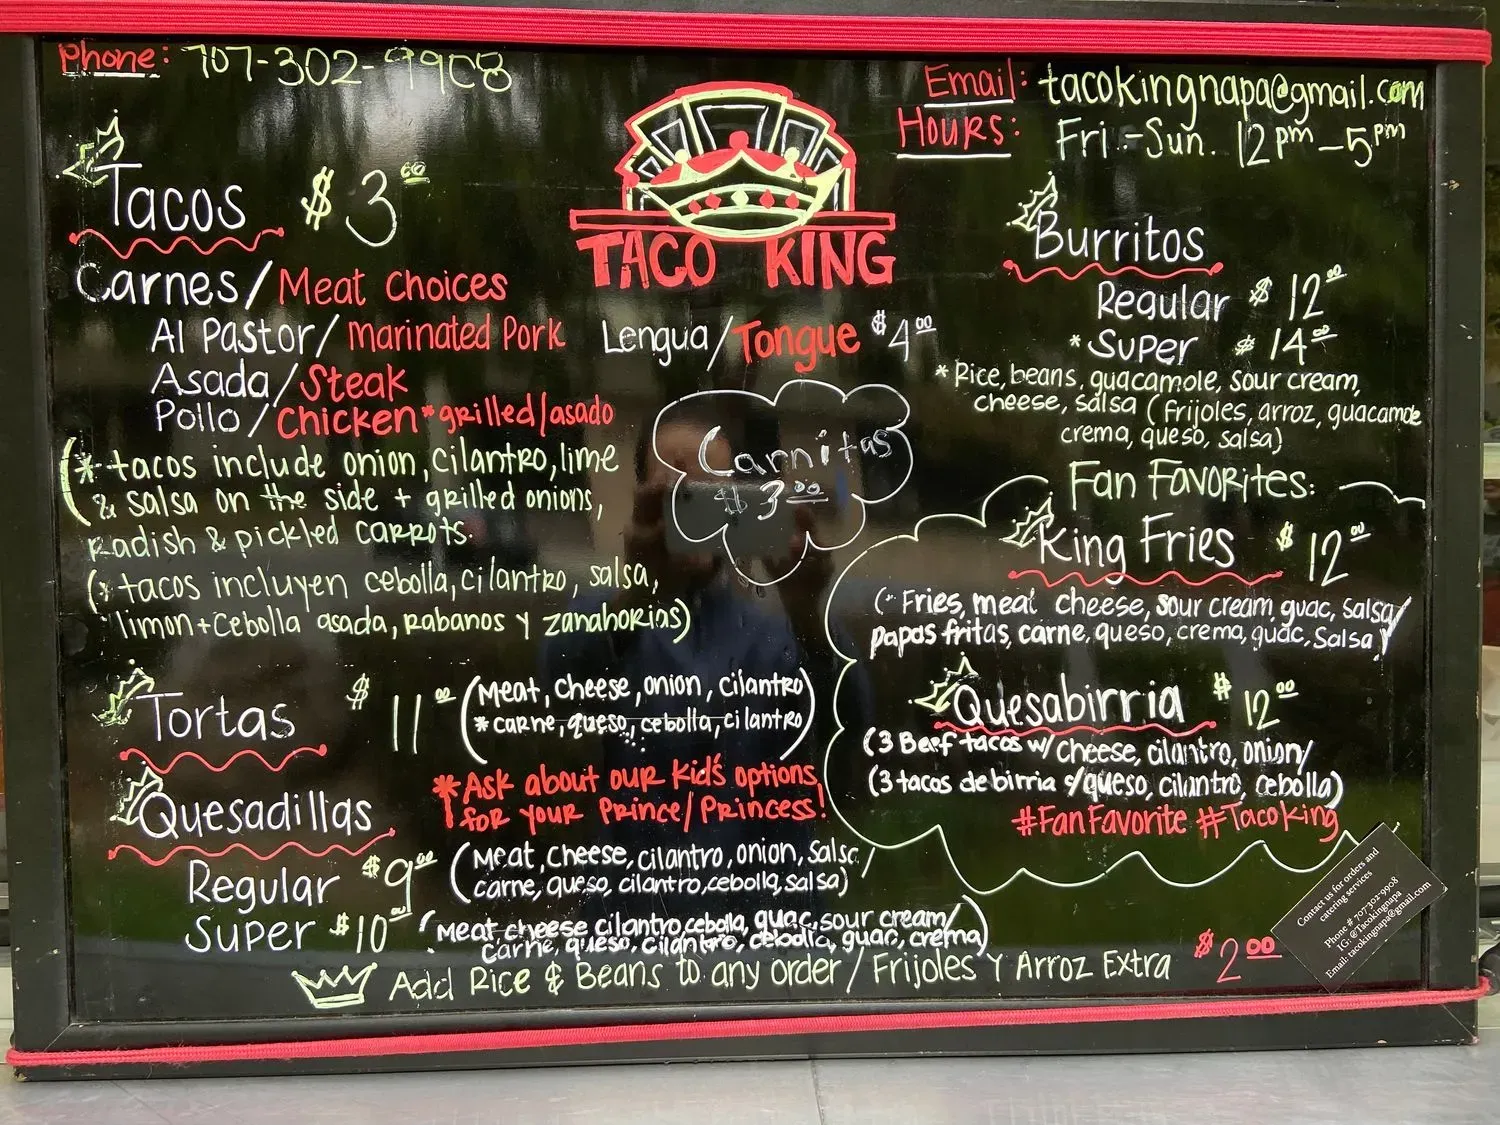 Phone: 707-302-9908
Email: tacokingnapa@gmail.com
Hours: Fri.-Sun. 12pm-5pm
TACO KING
Tacos $3.00
Carnes/Meat Choices
Al Pastor/Marinated Pork
Asada/Steak
Pollo/Chicken *grilled/asado
Lengua/Tongue $4.00
Carnitas
$3.00
(* tacos include onion, cilantro, lime
& salsa on the side + grilled onions,
radish & pickled carrots.
(* tacos incluyen cebolla, cilantro, salsa,
limon+cebolla asada, rabanos y zanahorias)
Tortas $11.00 (Meat, cheese, onion, cilantro)
* carne, queso, cebolla, cilantro)
*Ask about our kid's options
for your Prince/Princess!
Quesadillas
Regular $9.00 (Meat, cheese, cilantro, onion, salsa
carne, queso, cilantro, cebolla, salsa)
Super $10.00 (Meat cheese cilantro, cebolla, guac, sour cream/
carne, queso, cilantro, cebolla, guac, crema)
Burritos
Regular $12.00
*Super $14.00
* Rice, beans, guacamole, sour cream,
cheese, salsa (frijoles, arroz, guacamole
crema, queso, salsa)
Fan Favorites:
King Fries $12.00
(* Fries, meat cheese, sour cream, guac, salsa/
papas fritas, carne, queso, crema, guac, salsa)
Quesabirria $12.00
(3 Beef tacos w/ cheese, cilantro, onion/
(3 tacos de birria c/queso, cilantro, cebolla)
#FanFavorite #TacoKing
Add Rice & Beans to any order/Frijoles y Arroz Extra $2.00
Contact us for orders and
catering services
Phone # 707-302-9908
IG: @Tacokingnapa
Email: tacokingnapa@gmail.com